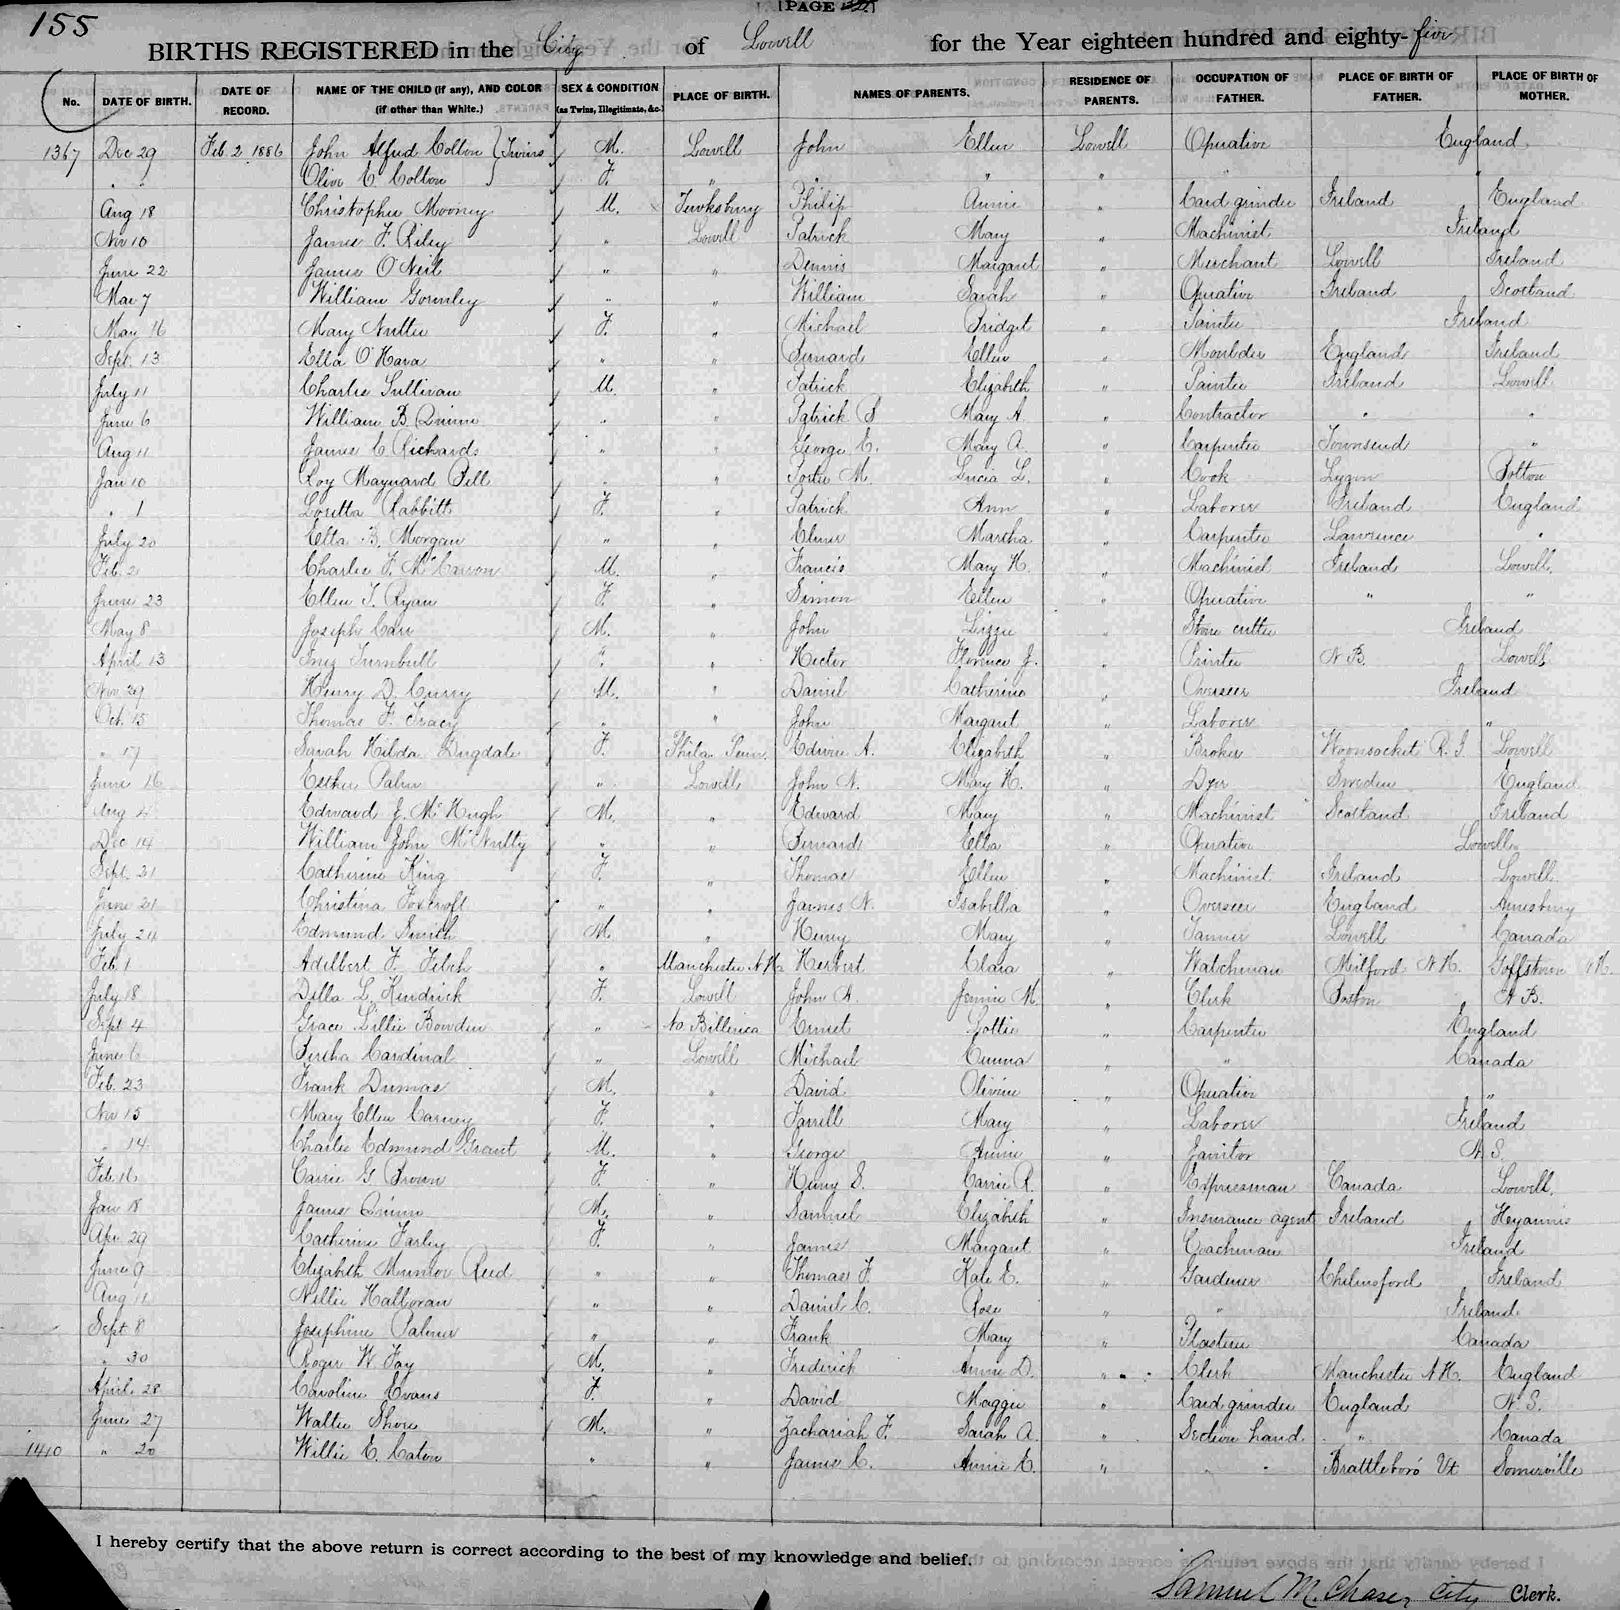 155
PAGE
BIRTHS REGISTERED in the City of Lowell for the Year eighteen hundred and eighty-five
No. DATE OF BIRTH. DATE OF RECORD. NAME OF THE CHILD (if any), AND COLOR (if other than White.) SEX & CONDITION (as Twins, Illegitimate, &c.) PLACE OF BIRTH. NAMES OF PARENTS. RESIDENCE OF PARENTS. OCCUPATION OF FATHER. PLACE OF BIRTH OF FATHER. PLACE OF BIRTH OF MOTHER.
1367 Dec 29 Feb. 2. 1886 John Alfred Colton } Twins M. Lowell John Ellen Lowell Operative England
" " Olive E. Colton F. " " " " " "
Aug 18 Christopher Mooney M. Tewksbury Philip Annie " Card grinder Ireland England
Nov 10 James F. Riley " Lowell Patrick Mary " Machinist Ireland
June 22 James O'Neil " " Dennis Margaret " Merchant Lowell Ireland
Mar 7 William Gormley " " William Sarah " Operative Ireland Scotland
May 16 Mary Nutter F. " Michael Bridget " Painter Ireland
Sept. 13 Ella O'Hara " " Bernard Ellen " Moulder England Ireland
July 11 Charles Sullivan M. " Patrick Elizabeth " Painter Ireland Lowell
June 6 William B. Quinn " " Patrick S Mary A. " Contractor " "
Aug 11 James C Richards " " George E. Mary A. " Carpenter Townsend "
Jan 10 Roy Maynard Bell " " Porter M. Lucia L. " Cook Bolton
" 1 Loretta Rabbitt F. " Patrick Ann " Laborer Ireland England
July 20 Etta B. Morgan " " Elmer Martha " Carpenter Lawrence "
Feb. 2 Charles F. McCarron M. " Francis Mary H. " Machinist Ireland Lowell.
June 23 Ellen T. Ryan F. " Simon Ellen " Operative " "
May 8 Joseph Carr M. " John Lizzie " Stone cutter Ireland
April 13 Inez Turnbull F. " Hector Florence J. " Printer N B. Lowell
Nov 29 Henry D. Curry M. " Daniel Catherine " Overseer Ireland
Oct. 15 Thomas F. Tracy " " John Margaret " Laborer "
" 17 Sarah Hilda Dugdale F. Phila. Penn. Edwin A. Elizabeth " Broker Woonsocket R. I Lowell
June 16 Esther Palm " Lowell John N. Mary H. " Dyer Sweden England
Aug 4 Edward J. McHugh M. " Edward Mary " Machinist Scotland Ireland
Dec 14 William John McNulty " " Bernard Ella " Operative Lowell
Sept. 21 Catherine King F. " Thomas Ellen " Machinist Ireland Lowell
June 21 Christina Foxcroft " " James N. Isabella " Overseer England Amesbury
July 24 Edmund Smith M. " Henry Mary " Tanner Lowell Canada
Feb. 1 Adelbert F. Felch " Manchester N.H. Herbert Clara " Watchman Milford N.H. Goffstown N.H.
July 18 Della L. Kendrick F. Lowell John A. Jennie M. " Clerk Boston N B.
Sept 4 Grace Lillie Bowden " No. Billerica Ernest Lottie " Carpenter England
June 6 Bertha Cardinal " Lowell Michael Emma " " Canada
Feb. 23 Frank Dumas M. " David Olivine " Operative "
Nov 15 Mary Ellen Carney F. " Farrell Mary " Laborer Ireland
" 14 Charles Edmund Grant M. " George Annie " Janitor N. S.
Feb. 16 Carrie G. Brown F. " Henry S. Carrie R. " Expressman Canada Lowell.
Jan 18 James Quinn M. " Samuel Elizabeth " Insurance agent Ireland Hyannis
Apr. 29 Catherine Farley F. " James Margaret " Coachman Ireland
June 9 Elizabeth Munroe Reed " " Thomas F. Kate E. " Gardener Chelmsford Ireland
Aug 11 Nellie Halloran " " Daniel C. Rose " " Ireland
Sept. 8 Josephine Palmer " " Frank Mary " Plasterer Canada
" 30 Roger W. Fay M. " Frederick Annie D. " Clerk Manchester N.H. England
April 28 Caroline Evans F. " David Maggie " Card grinder England N. S.
June 27 Walter Shore M. " Zachariah F. Sarah A. " Section hand " Canada
1410 " 20 Willie E. Caton " " James C. Annie E. " " Brattleboro' Vt Somerville
I hereby certify that the above return is correct according to the best of my knowledge and belief.
Samuel M. Chase, City Clerk.